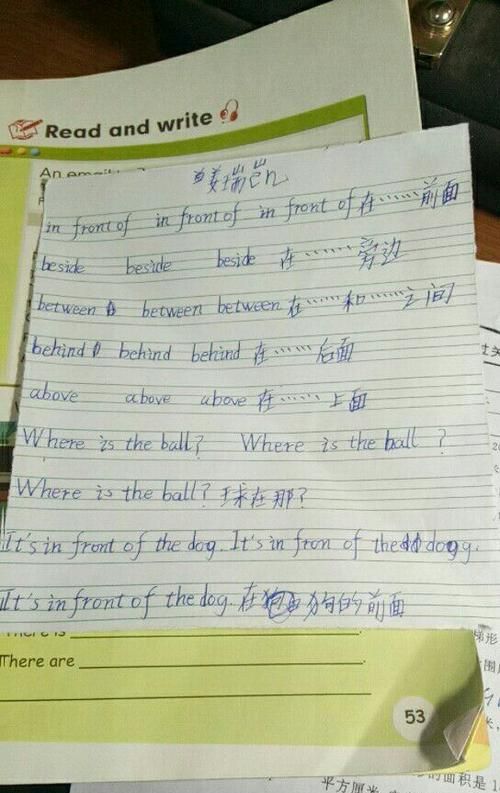 Read and write
姜瑞én
in front of in front of in front of 在……前面
beside beside beside 在……旁边
between between between 在……和……之间
behind behind behind 在……后面
above above above 在……上面
Where is the ball? Where is the ball?
Where is the ball? 球在那?
It's in front of the dog. It's in fron of the dogg.
It's in front of the dog. 在狗的前面
There is
There are
53
梯形
的面积是1
平方厘米